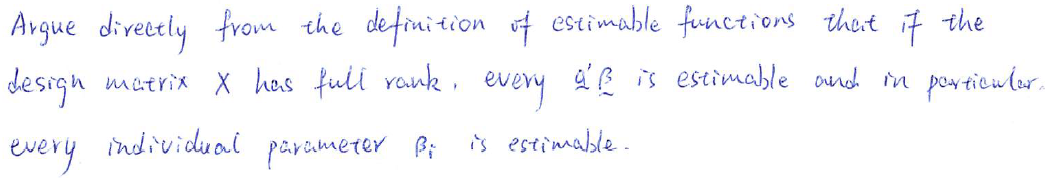 Argue directly from the definition of estimable functions that if the
design matrix X has full rank, every a'β is estimable and in particular.
every individual parameter βi is estimable.